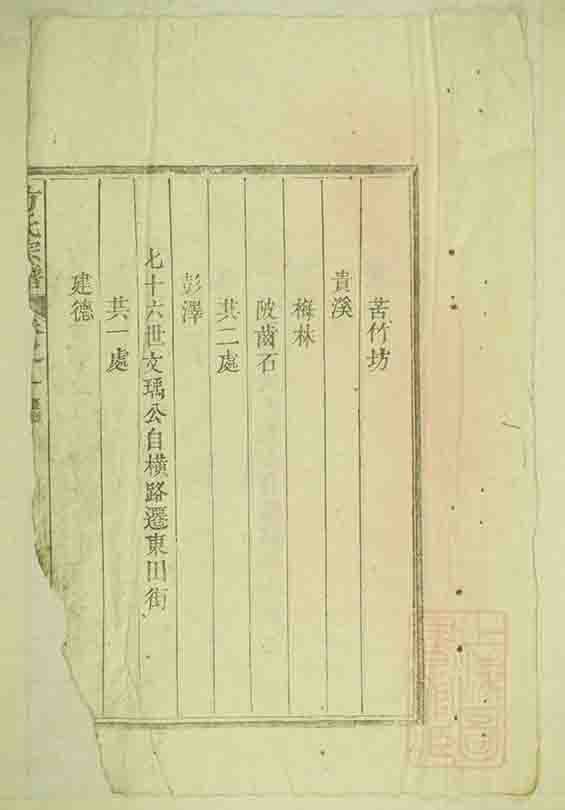 苦竹坊
貴溪
梅林
陂崗石
共二處
彭澤
七十六世文瑀公自橫路遷東田街
共一處
建德
方氏宗譜